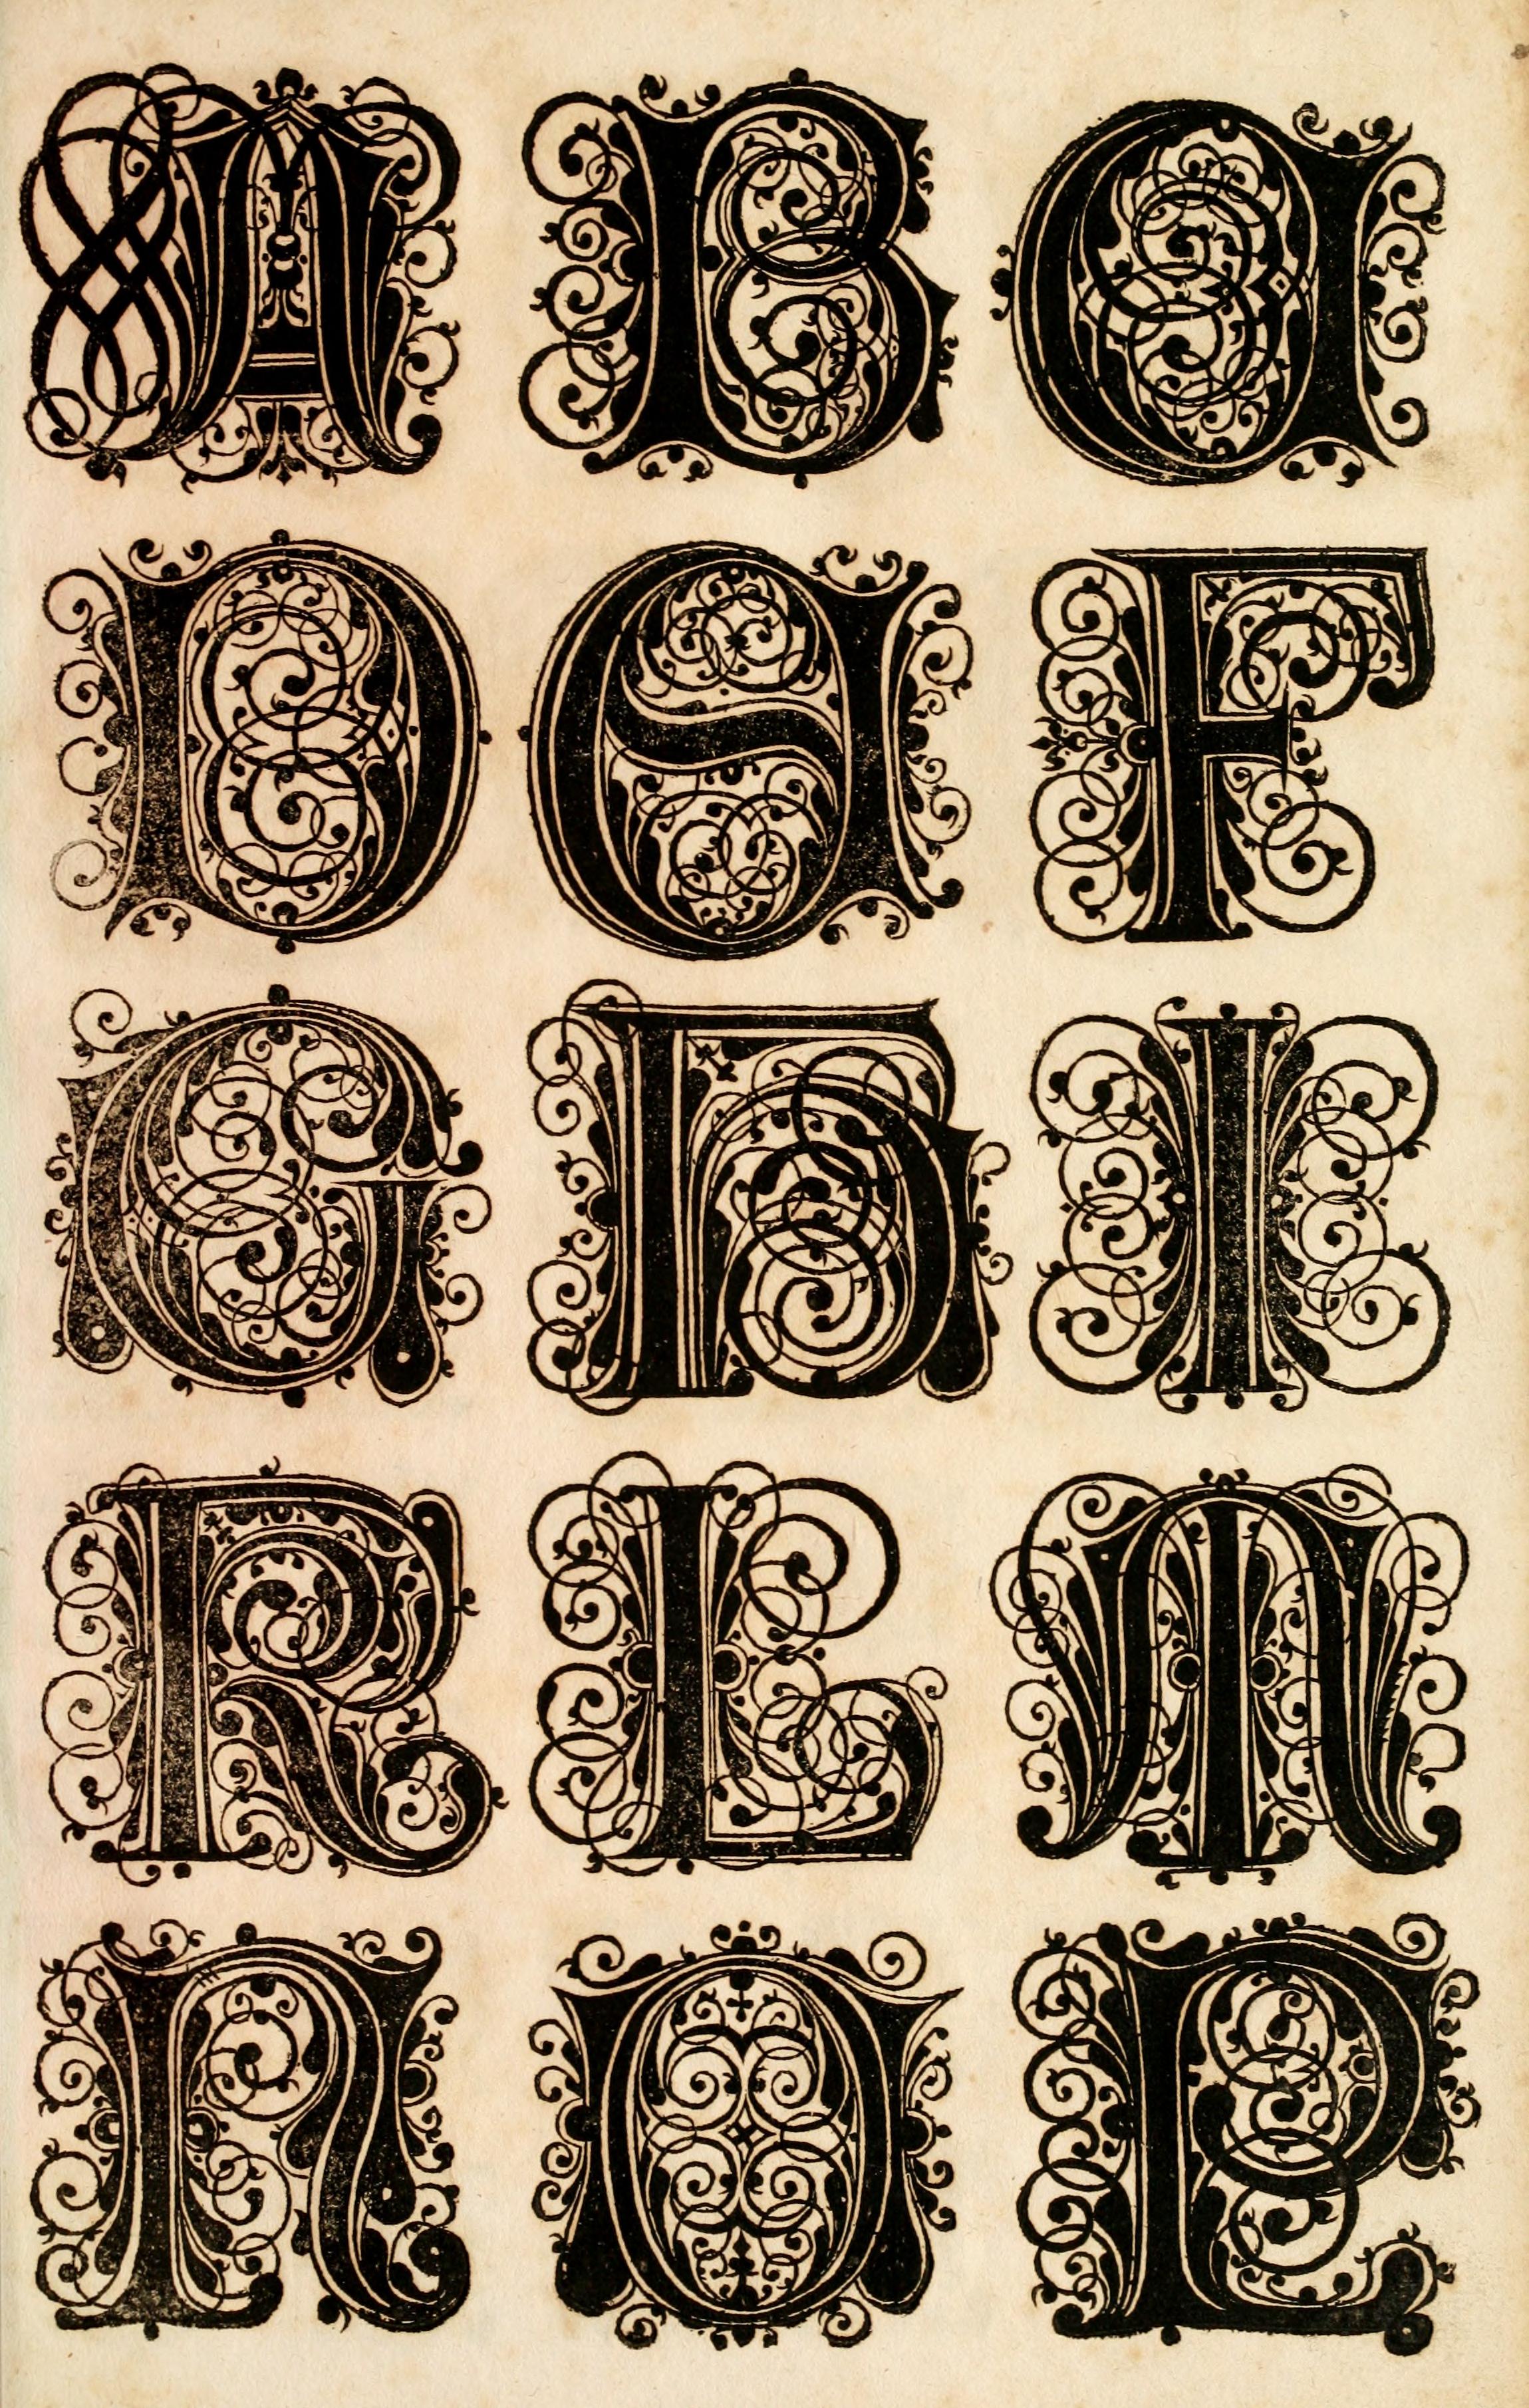 A B C
D E F
G H I
K L M
N O P